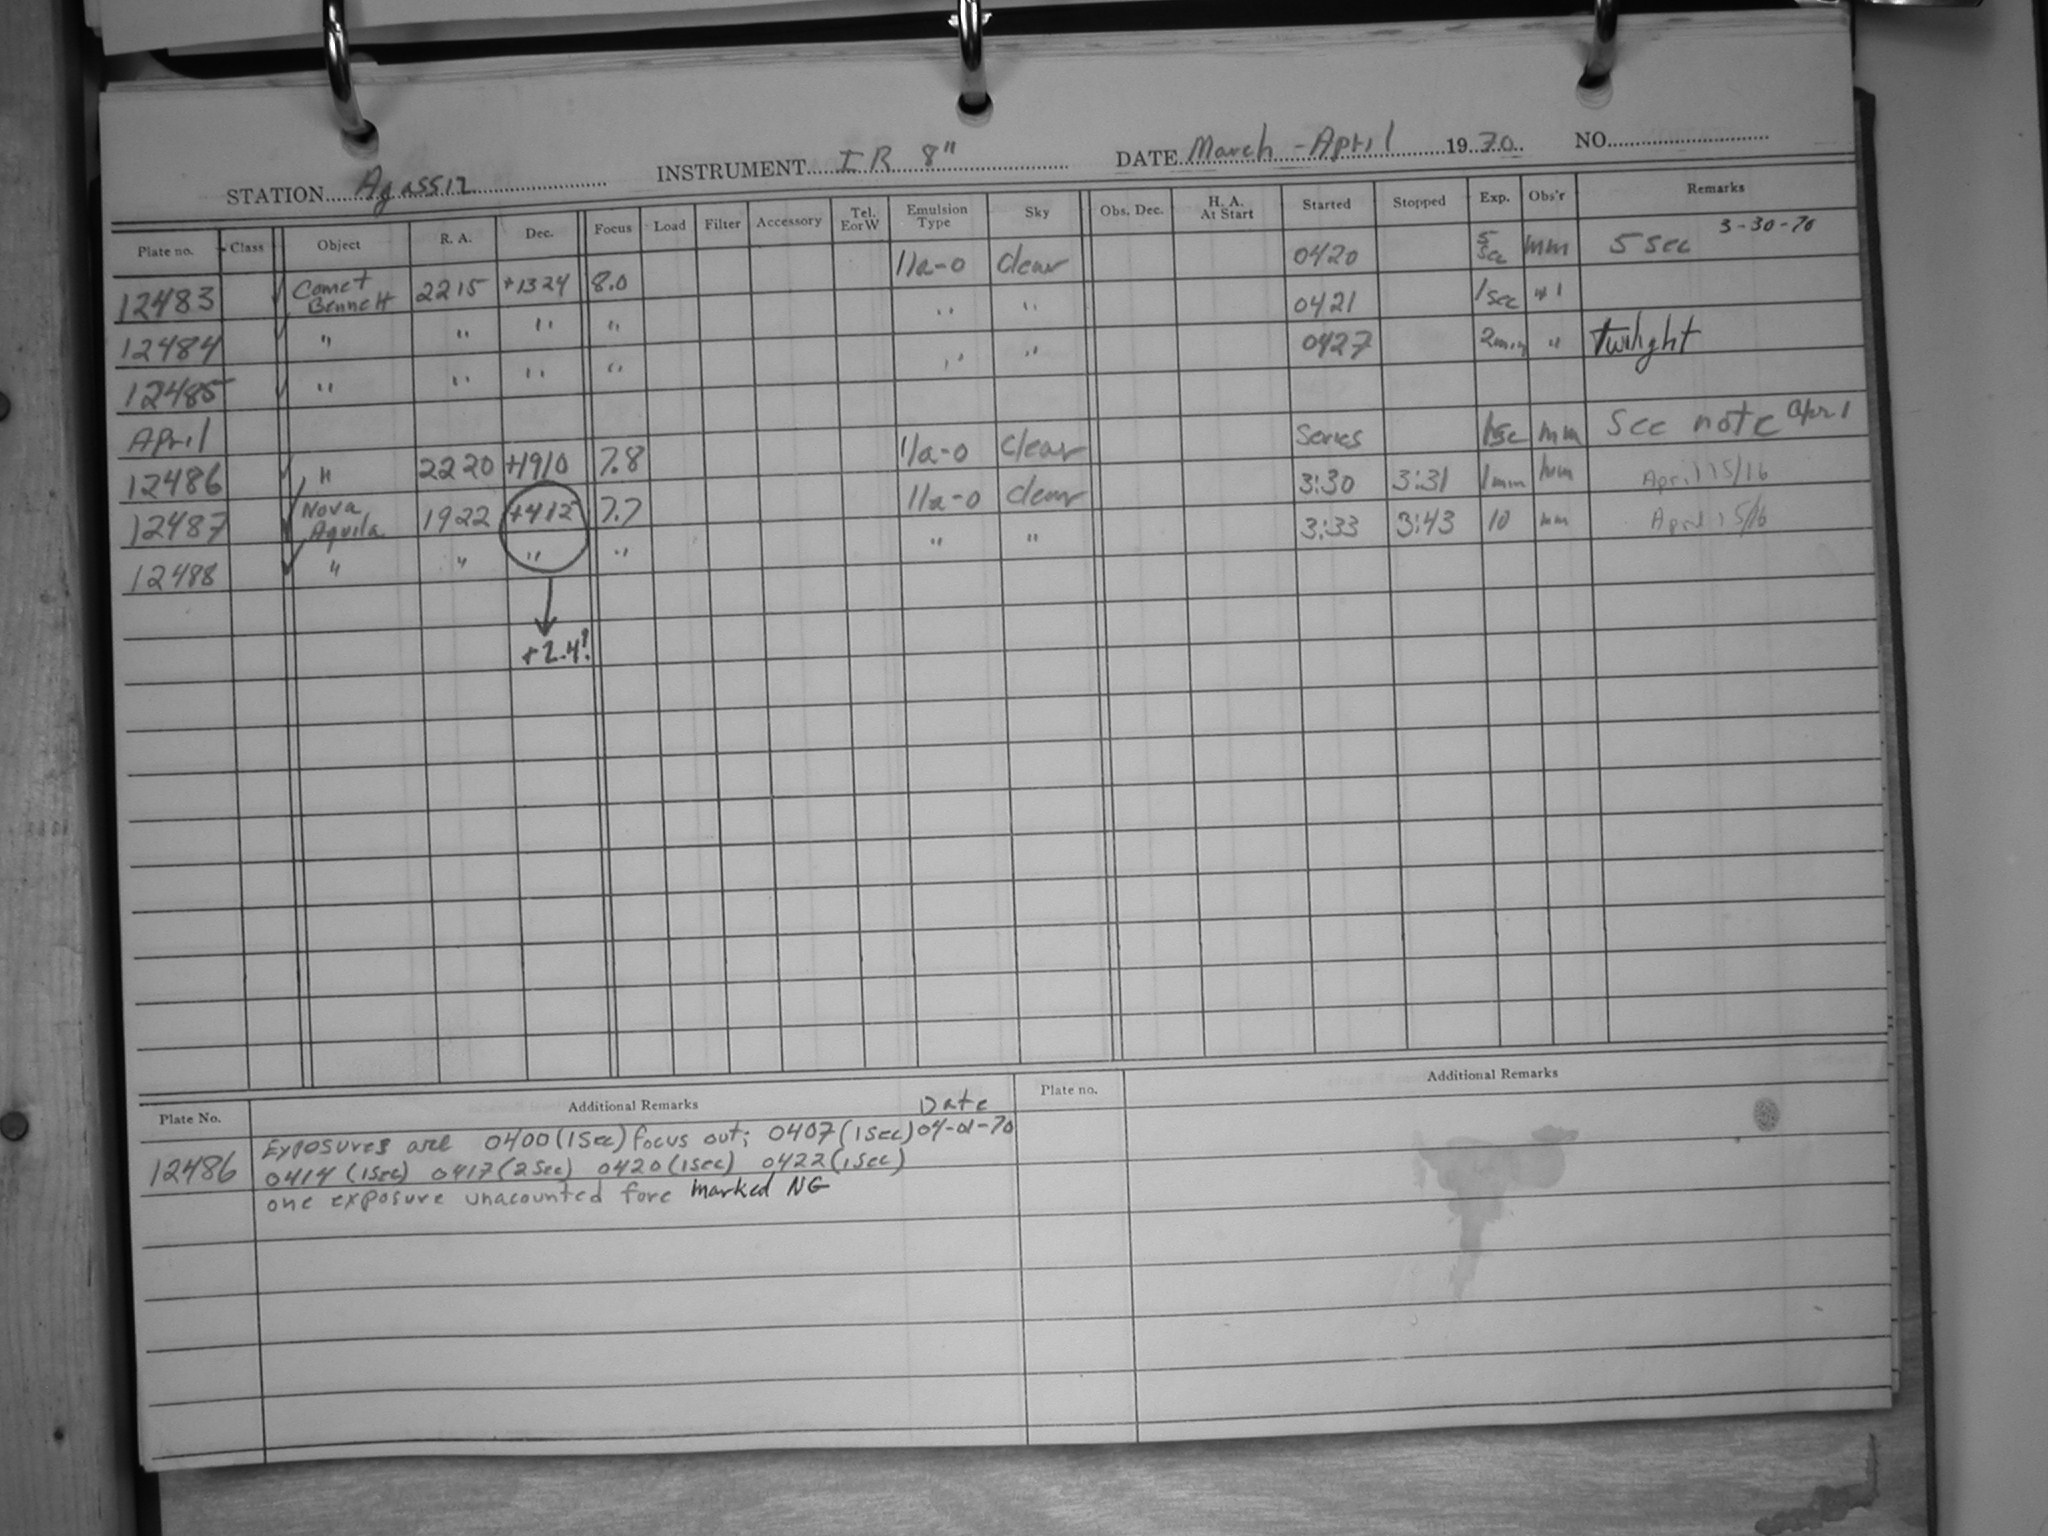 STATION Agassiz INSTRUMENT IR 8" DATE March - April 1970. NO.
Plate no. Class Object R. A. Dec. Focus Load Filter Accessory Tel. E or W Emulsion Type Sky Obs. Dec. H. A. At Start Started Stopped Exp. Obs'r Remarks
3-30-70
12483 Comet Bennett 2215 +1324 8.0 IIa-O Clear 0420 5 sec mm 5 sec
12484 " " " " " " 0421 1 sec "
12485 " " " " " " 0427 2 min " twilight
April
12486 " 2220 +1910 7.8 IIa-O Clear Series 1 sec mm See note April 1
12487 Nova Aquila 1922 +412 7.7 IIa-O Clear 3:30 3:31 1 min mm April 15/16
12488 " " " " " " 3:33 3:43 10 mm April 15/16
+2.4!
Plate No. Additional Remarks Date Plate no. Additional Remarks
12486 Exposures are 0400 (1 Sec) focus out; 0407 (1 Sec) 04-01-70
0414 (1 Sec) 0417 (2 Sec) 0420 (1 Sec) 0422 (1 Sec)
one exposure unacounted fore marked NG